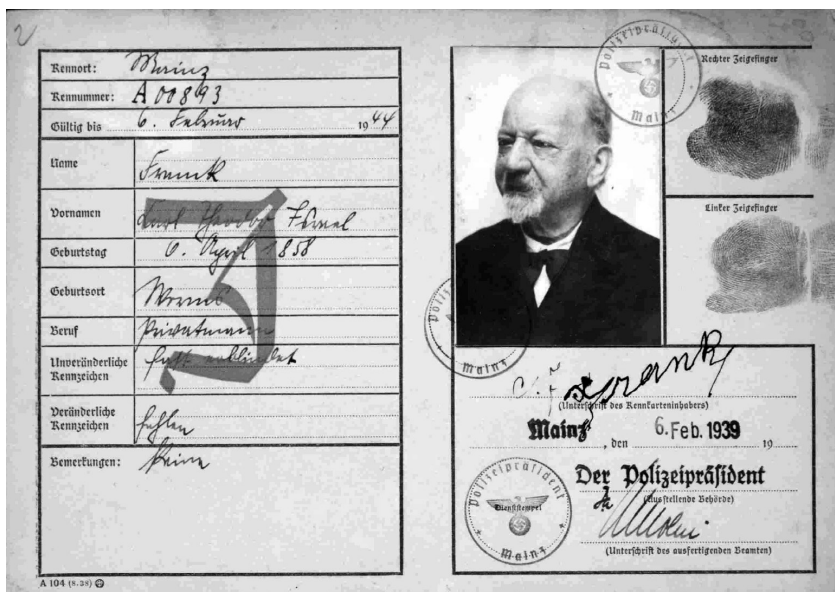 2
Kennort: Mainz
Kennummer: A 00893
Gültig bis 6. Februar 1944
Name Frank
Vornamen Karl Theodor Israel
Geburtstag 6. April 1858
Geburtsort Worms
Beruf Privatmann
Unveränderliche Kennzeichen fast erblindet
Veränderliche Kennzeichen fehlen
Bemerkungen: Keine
J
A 104 (8. 38)
Polizeipräsident
Mainz
Rechter Zeigefinger
Linker Zeigefinger
Polizeipräsident
Mainz
Frank
(Unterschrift des Kennkarteninhabers)
Mainz, den 6. Feb. 1939 19
Der Polizeipräsident
(Ausstellende Behörde)
Polizeipräsident
Dienststempel
Mainz
(Unterschrift des ausfertigenden Beamten)